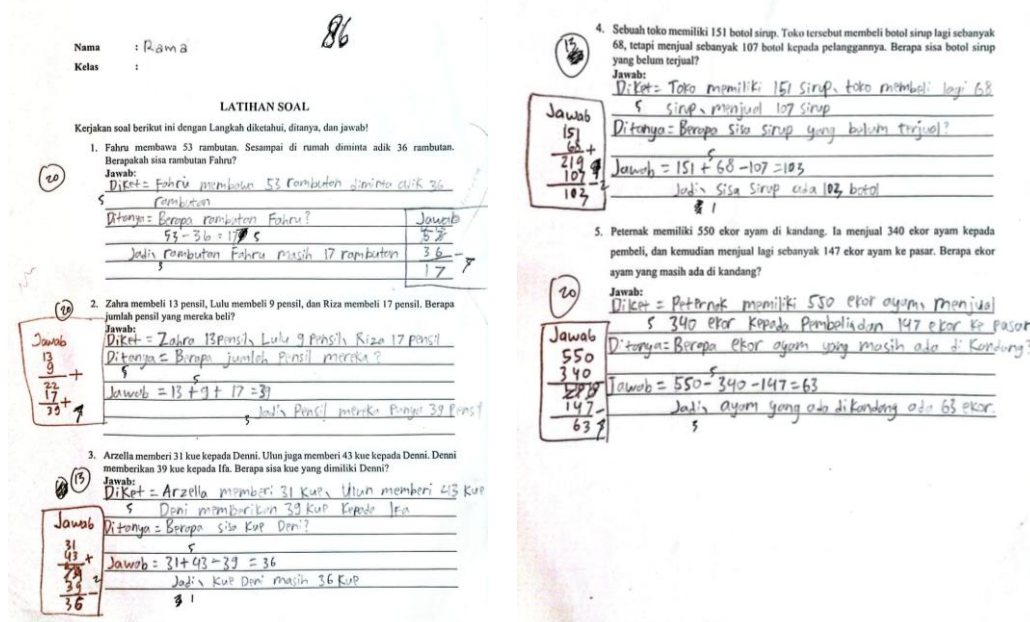 86
Nama : Rama
Kelas :
LATIHAN SOAL
Kerjakan soal berikut ini dengan Langkah diketahui, ditanya, dan jawab!
1. Fahru membawa 53 rambutan. Sesampai di rumah diminta adik 36 rambutan.
Berapakah sisa rambutan Fahru?
20
Jawab:
Diket = Fahru membawa 53 rambutan diminta adik 36
5
rambutan
Ditanya = Berapa rambutan Fahru?
53 - 36 = 17 5
Jadi, rambutan Fahru masih 17 rambutan
5
Jawab
53
36 -
17
2. Zahra membeli 13 pensil, Lulu membeli 9 pensil, dan Riza membeli 17 pensil. Berapa
jumlah pensil yang mereka beli?
20
Jawab:
Diket = Zahra 13 Pensil, Lulu 9 Pensil, Riza 17 Pensil
Ditanya = Berapa jumlah Pensil mereka?
5
5
Jawab = 13 + 9 + 17 = 39
Jadi, Pensil mereka Punya 39 Pensil
5
Jawab
13
9 +
22
17 +
39
3. Arzella memberi 31 kue kepada Denni. Ulun juga memberi 43 kue kepada Denni. Denni
memberikan 39 kue kepada Ifa. Berapa sisa kue yang dimiliki Denni?
13
Jawab:
Diket = Arzella memberi 31 Kue, Ulun memberi 43 Kue
5 Deni memberikan 39 Kue Kepada Ifa
Ditanya = Berapa sisa Kue Deni?
5
Jawab = 31 + 43 - 39 = 36
Jadi, Kue Deni masih 36 Kue
1
Jawab
31
43 +
39 - 2
36
4. Sebuah toko memiliki 151 botol sirup. Toko tersebut membeli botol sirup lagi sebanyak
68, tetapi menjual sebanyak 107 botol kepada pelanggannya. Berapa sisa botol sirup
yang belum terjual?
13
Jawab:
Diket = Toko memiliki 151 sirup, toko membeli lagi 68
5 sirup, menjual 107 sirup
Ditanya = Berapa sisa sirup yang belum terjual?
5
Jawab = 151 + 68 - 107 = 103
Jadi, sisa sirup ada 103 botol
1
Jawab
151
68 +
219
107 - 2
103
5. Peternak memiliki 550 ekor ayam di kandang. Ia menjual 340 ekor ayam kepada
pembeli, dan kemudian menjual lagi sebanyak 147 ekor ayam ke pasar. Berapa ekor
ayam yang masih ada di kandang?
20
Jawab:
Diket = Peternak memiliki 550 ekor ayam, menjual
5 340 ekor Kepada Pembeli, dan 147 ekor Ke Pasar
Ditanya = Berapa ekor ayam yang masih ada di Kandang?
5
Jawab = 550 - 340 - 147 = 63
Jadi, ayam yang ada di Kandang ada 63 ekor.
5
Jawab
550
340
147 -
63